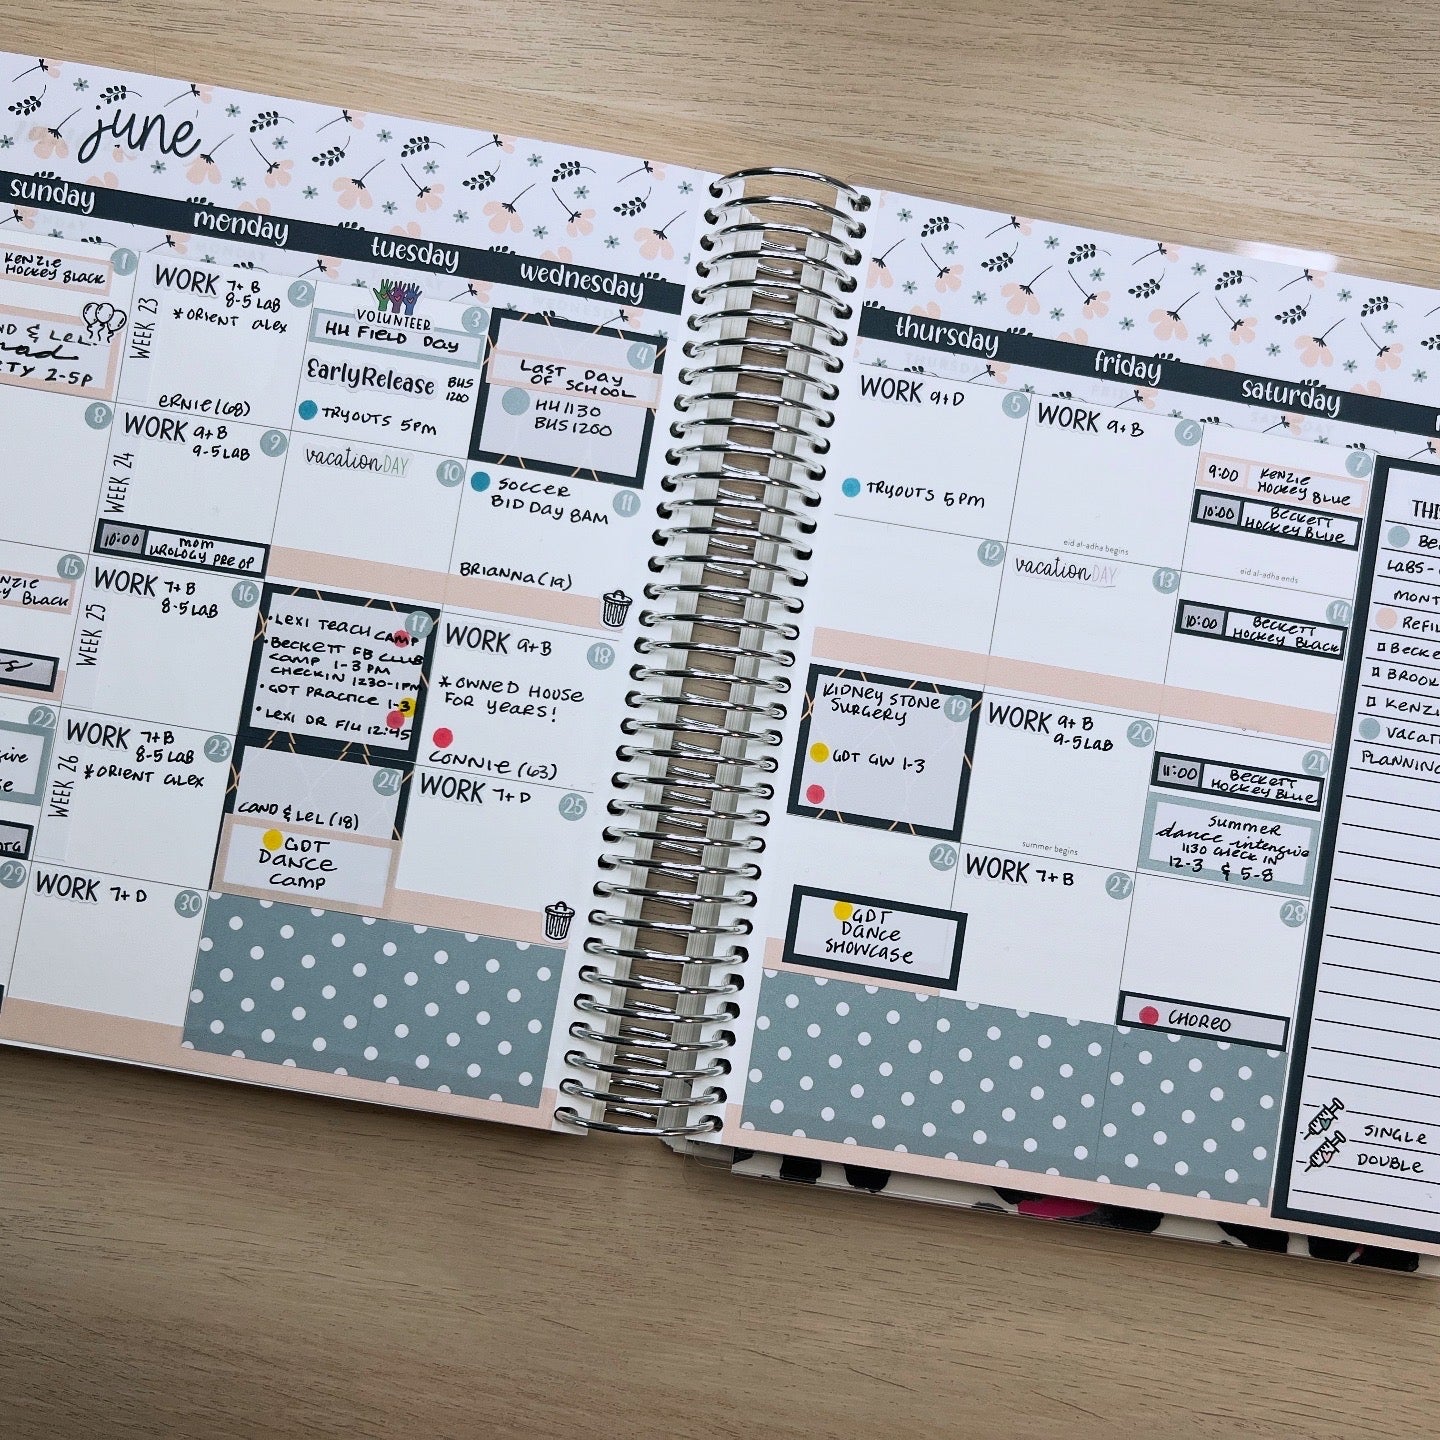 june
sunday
monday
tuesday
wednesday
thursday
friday
saturday
KENZIE
HOCKEY BLACK
1
& LEL
2-5P
WEEK 23
WORK 7+B
8-5 LAB
2
*ORIENT ALEX
ERNIE (68)
VOLUNTEER
3
HH FIELD DAY
EarlyRelease BHS
1200
TRYOUTS 5PM
4
LAST DAY
OF SCHOOL
HH 1130
BHS 1200
WORK 9+D
5
TRYOUTS 5PM
WORK 9+B
6
eid al-adha begins
7
9:00 KENZIE
HOCKEY BLUE
10:00 BECKETT
HOCKEY BLUE
eid al-adha ends
8
WEEK 24
WORK 9+B
9-5 LAB
9
10:00 MOM
UROLOGY PRE OP
vacation DAY
10
SOCCER
BID DAY 8AM
11
BRIANNA (19)
12
vacation DAY
13
14
10:00 BECKETT
HOCKEY BLACK
15
BLACK
WEEK 25
WORK 7+B
8-5 LAB
16
17
• LEXI TEACH CAMP
• BECKETT FB CLUB
CAMP 1-3 PM
CHECKIN 1230-1PM
• GDT PRACTICE 1-3
• LEXI DR F/U 12:45
WORK 9+B
18
*OWNED HOUSE
FOR YEARS!
CONNIE (63)
KIDNEY STONE
SURGERY
19
GDT GW 1-3
WORK 9+B
9-5 LAB
20
summer begins
21
11:00 BECKETT
HOCKEY BLUE
SUMMER
dance intensive
1130 CHECK IN
12-3 & 5-8
22
WEEK 26
WORK 7+B
8-5 LAB
23
*ORIENT ALEX
24
CAND & LEL (18)
GDT
DANCE
CAMP
WORK 7+D
25
26
GDT
DANCE
SHOWCASE
WORK 7+B
27
28
CHOREO
29
WORK 7+D
30
LABS-
REFIL
BECKE
BROOK
KENZI
VACATI
PLANNING
SINGLE
DOUBLE